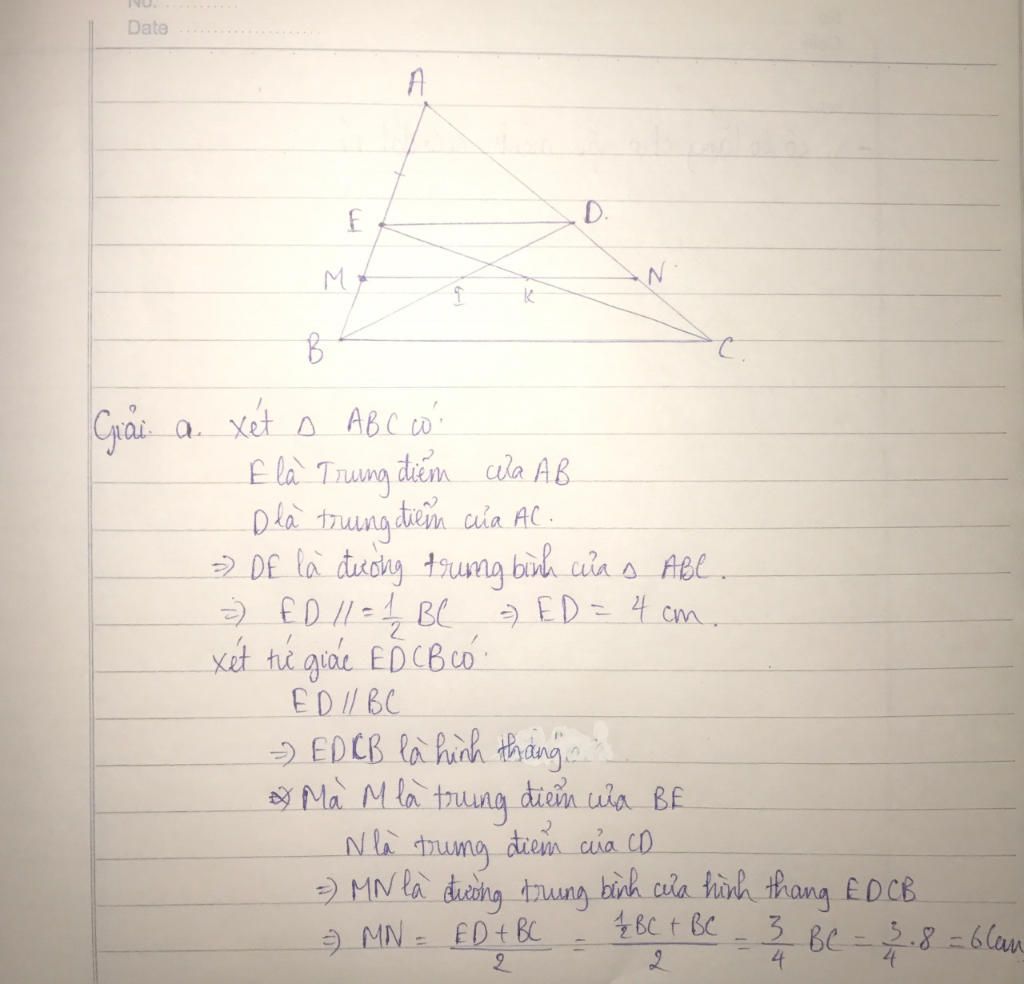 No. ............
Date ........................
A
E
D.
M
N
I
K
B
C.
Giải. a. Xét △ ABC có:
E là Trung điểm của AB
D là trung điểm của AC.
=> DE là đường trung bình của △ ABC.
=> ED // = 1/2 BC => ED = 4 cm.
Xét tứ giác EDCB có:
ED // BC
=> EDCB là hình thang
Mà M là trung điểm của BE
N là trung điểm của CD
=> MN là đường trung bình của hình thang EDCB
=> MN = (ED + BC)/2 = (1/2 BC + BC)/2 = 3/4 BC = 3/4 . 8 = 6 (cm